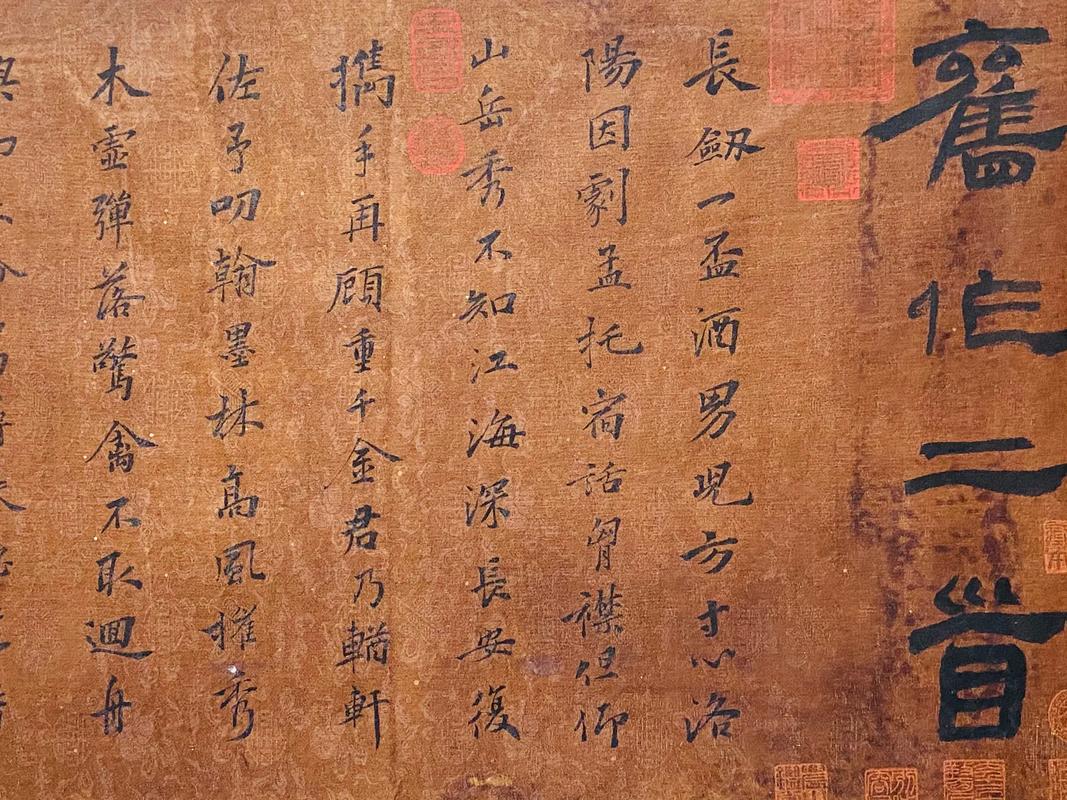 舊作二首
長劔一盃酒男児方寸心洛
陽因劇孟托宿話胷襟但仰
山岳秀不知江海深長安復
攜手再顧重千金君乃輶軒
佐予叨翰墨林高風摧秀
木虚彈落驚禽不取迴舟